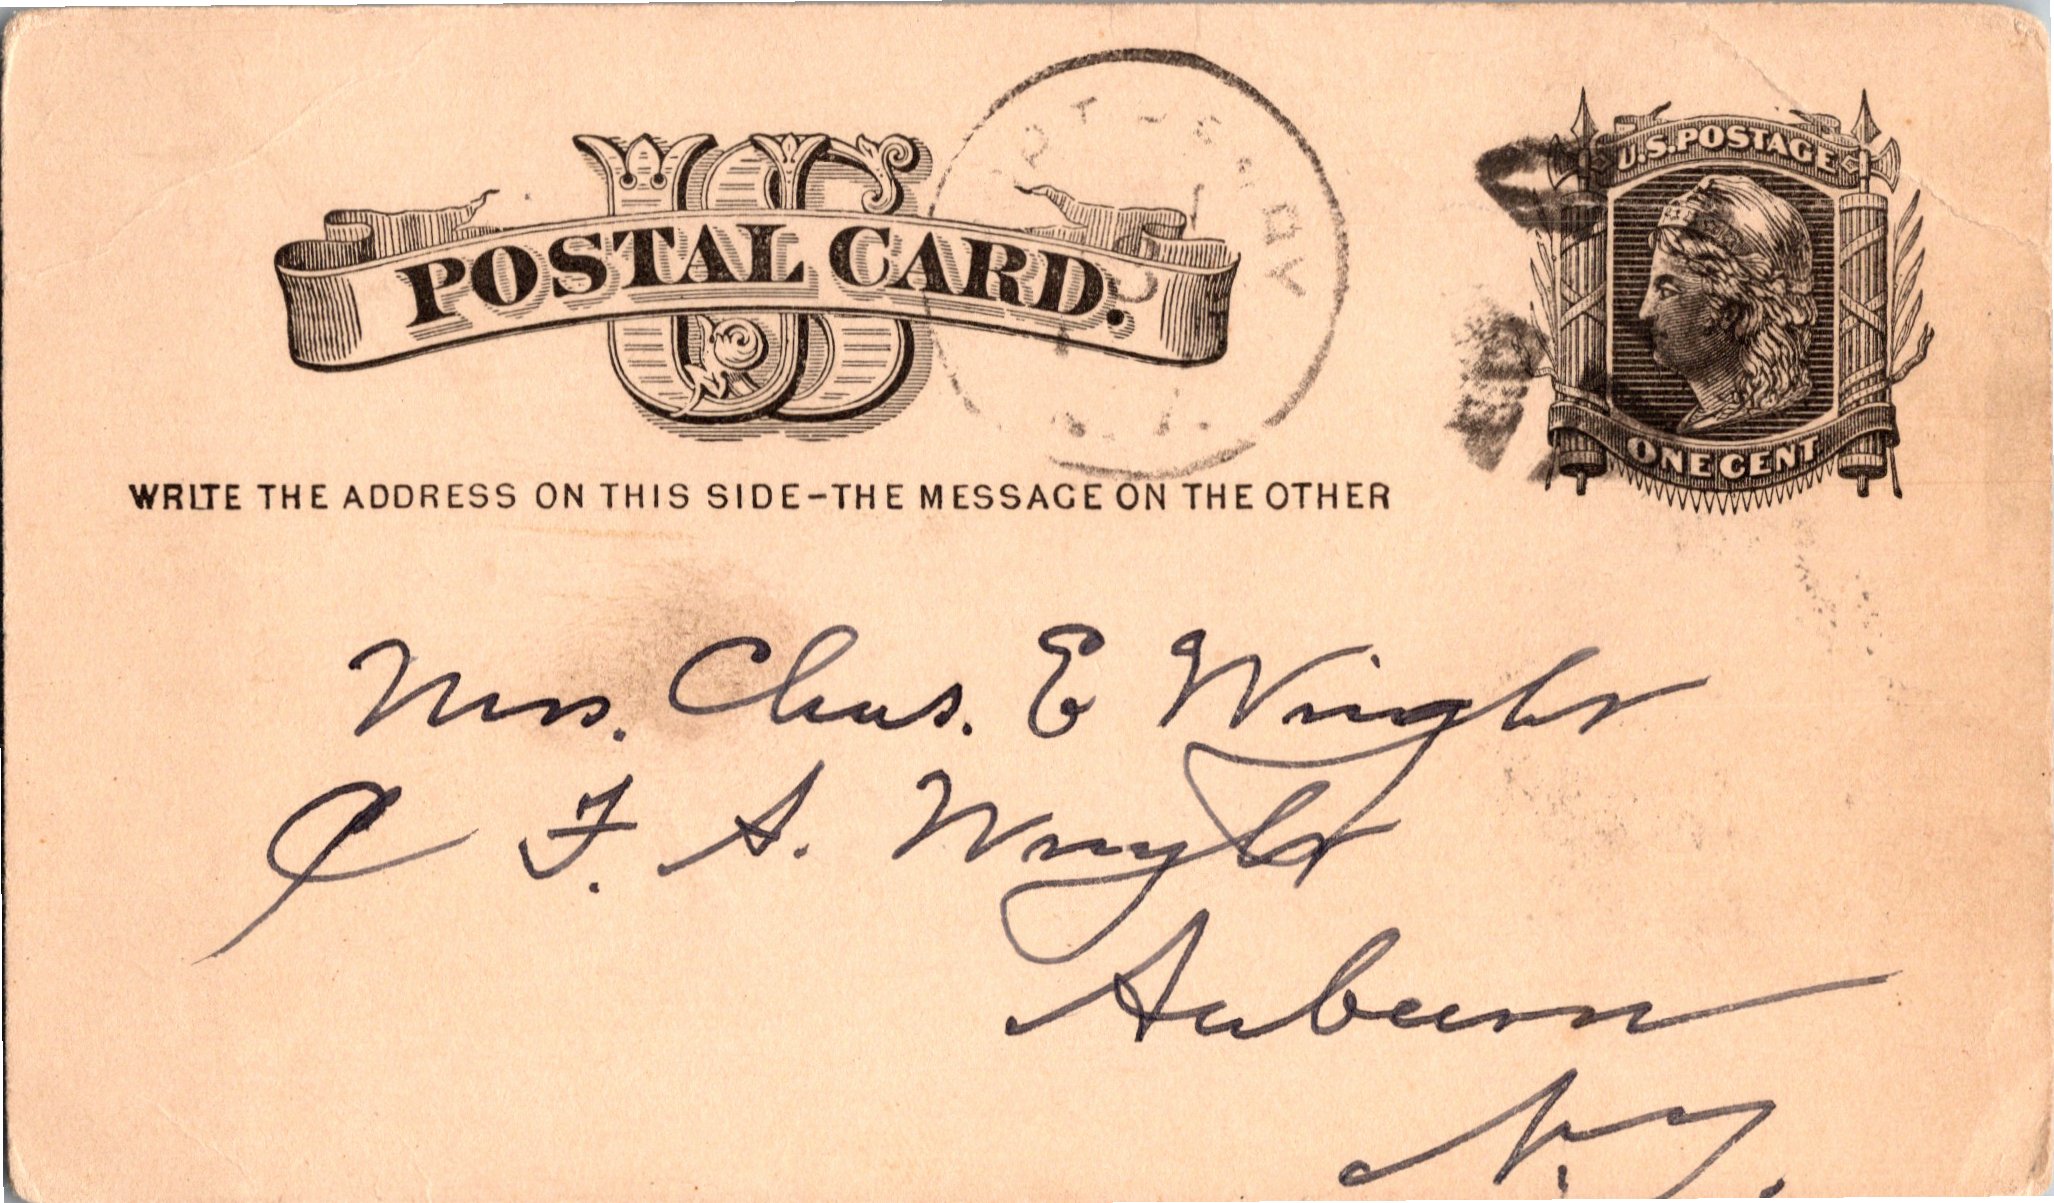 U.S. POSTAGE
US
POSTAL CARD.
ONE CENT
WRITE THE ADDRESS ON THIS SIDE-THE MESSAGE ON THE OTHER
Mrs. Chas. E Wright
F. A. Wright
Auburn
N.Y.